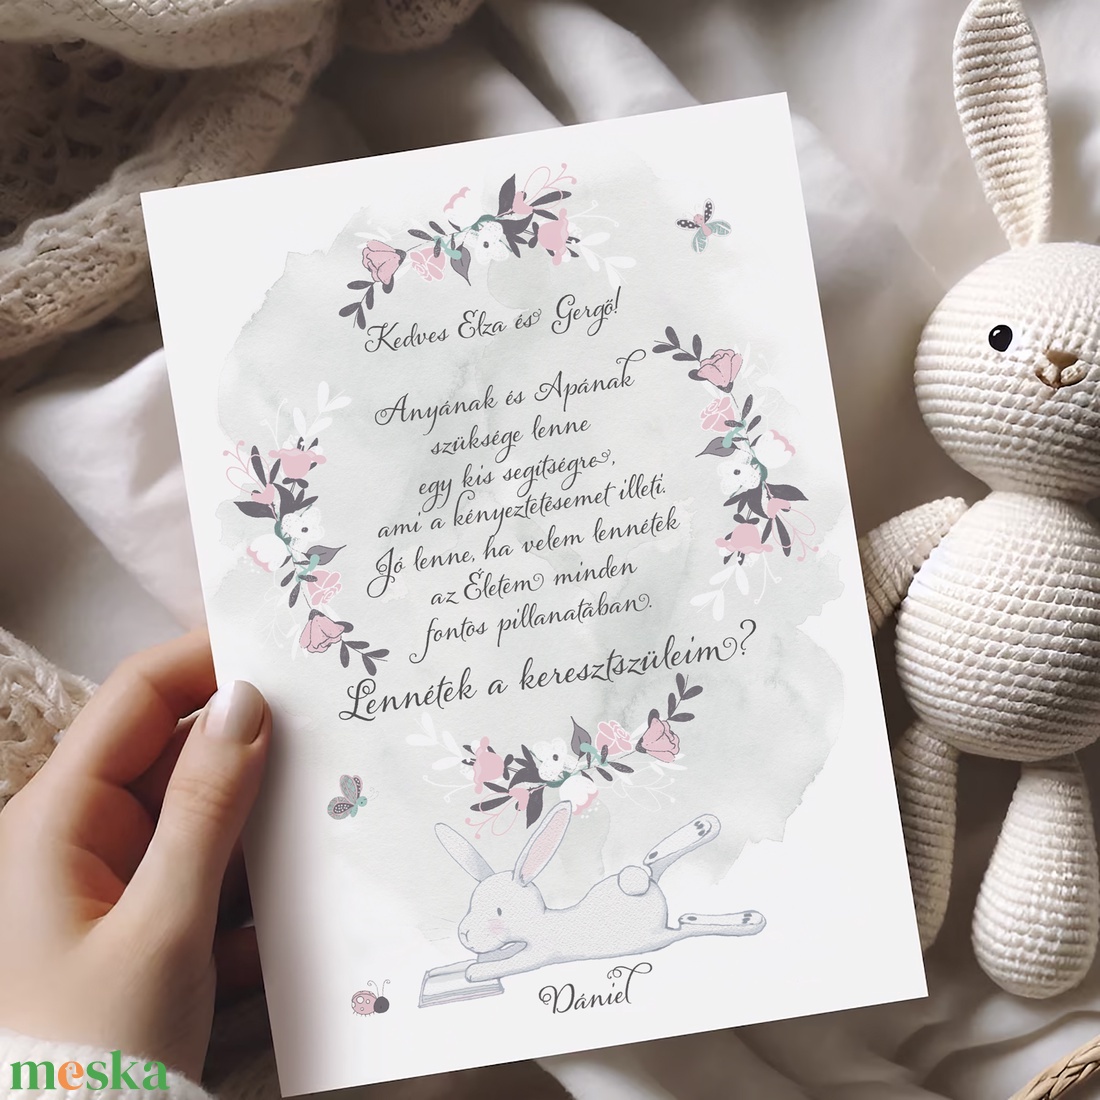 Kedves Elza és Gergő!
Anyának és Apának
szüksége lenne
egy kis segítségre,
ami a kényeztetésemet illeti.
Jó lenne, ha velem lennétek
az Életem minden
fontos pillanatában.
Lennétek a keresztszüleim?
Dániel
meska